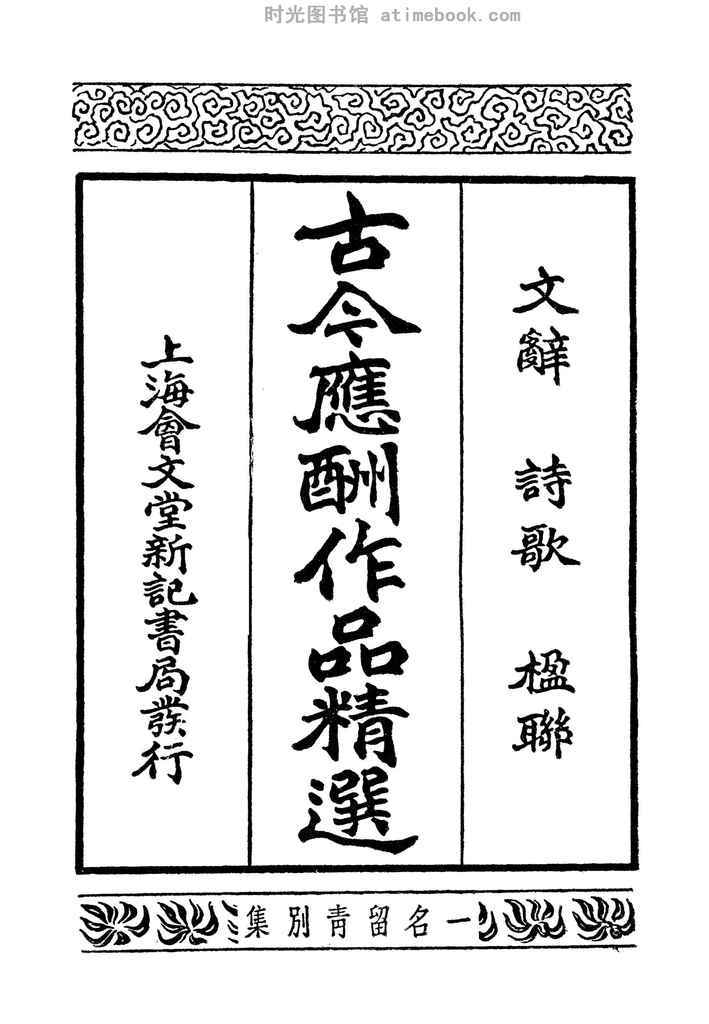 时光图书馆 atimebook.com
文辭 詩歌 楹聯
古今應酬作品精選
上海會文堂新記書局發行
一名留靑別集